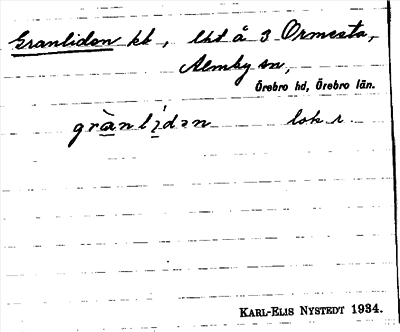 Granlidon kt, lht å 3 Ormesta,
Almby sn,
Örebro hd, Örebro län.
grànlídən lok r.
KARL-ELIS NYSTEDT 1934.